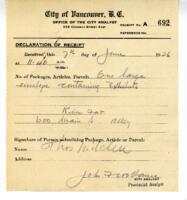 City of Vancouver, B. C.
OFFICE OF THE CITY ANALYST
RECEIPT No. A 692
REFERENCE No.
DECLARATION OF RECEIPT
Received this 7th day of June 1926
at 11:40
No. of Packages, Articles, Parcel: One large
envelope containing Exhibits
600 Main St. alley
Signature of Person submitting Package, Article or Parcel:
Name
Address
CITY ANALYST
Provincial Analyst